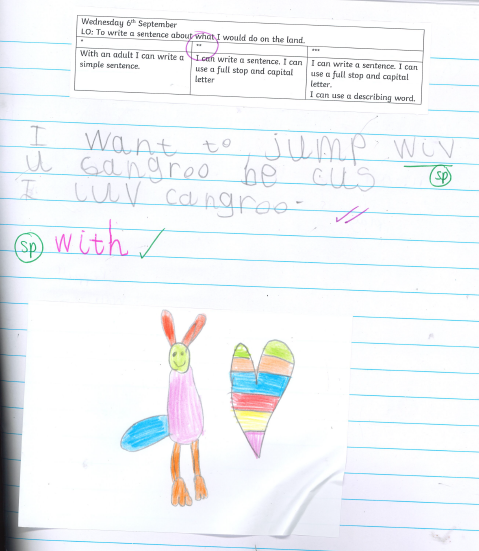 Wednesday 6th September
LO: To write a sentence about what I would do on the land.
* ** ***
With an adult I can write a simple sentence.
I can write a sentence. I can use a full stop and capital letter
I can write a sentence. I can use a full stop and capital letter.
I can use a describing word.
I want to jump wiv
u cangroo be cus
I luv cangroo.
sp
sp with